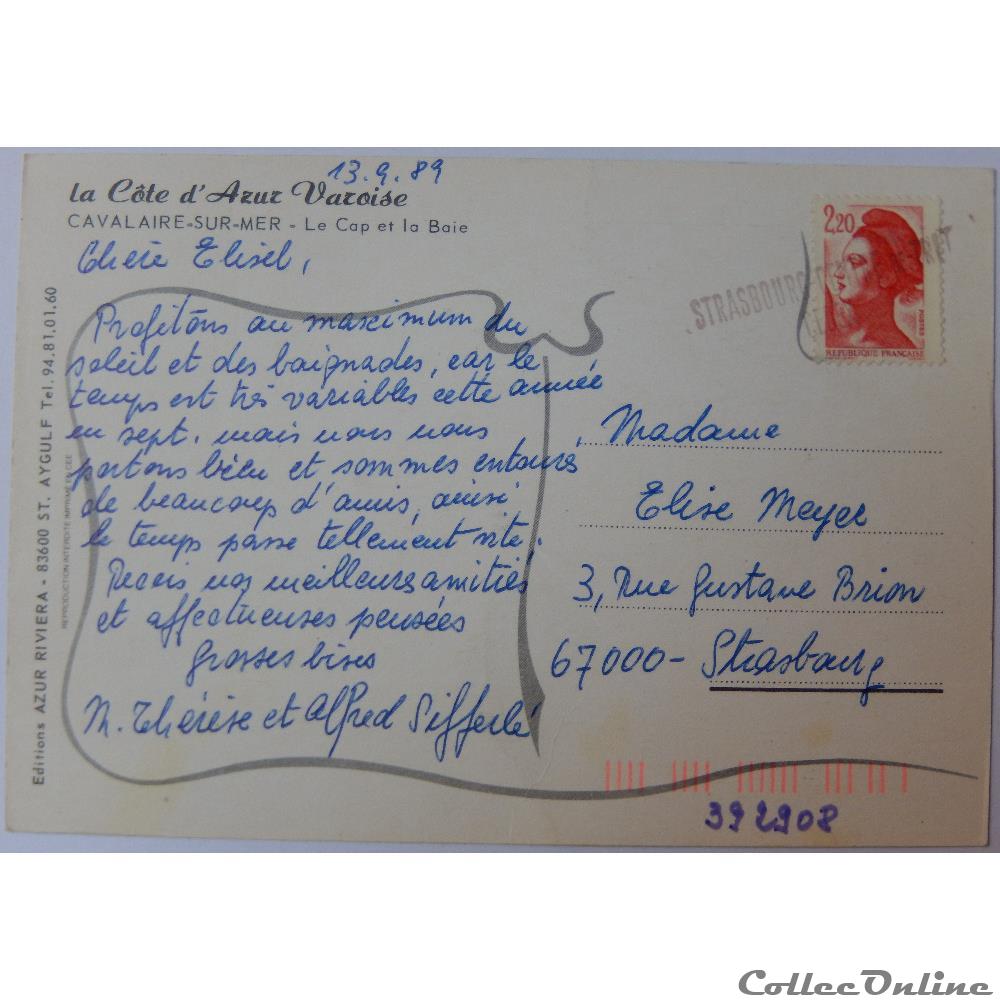 13.9.89
la Côte d'Azur Varoise
CAVALAIRE-SUR-MER - Le Cap et la Baie
Chère Elisel,
Profitons au maximum du
soleil et des baignades, car le
temps est très variables cette année
en sept. mais nous nous
portons bien et sommes entourés
de beaucoup d'amis, ainsi
le temps passe tellement vite.
Recois nos meilleures amitiés
et affectueuses pensées
Grosses bises
M. Thérèse et Alfred Sifferlé
Editions AZUR RIVIERA - 83600 ST. AYGULF Tel. 94.81.01.60
REPRODUCTION INTERDITE IMPRIMÉ EN CEE
2,20
POSTES
REPUBLIQUE FRANÇAISE
STRASBOURG
Madame
Elise Meyer
3, Rue Gustave Brion
67000 - Strasbourg
392908
CollecOnline